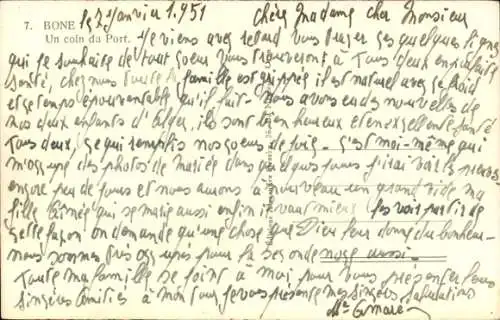 7. BONE
Un coin du Port.
le 7 Janvier 1.951
Chère Madame cher Monsieur
Je viens avec retard vous tracer ces quelques lignes
qui je souhaite de tout coeur vous trouveront à tous deux en parfaite
santé, chez nous toute la famille est grippée il est naturel avec le froid
et ce temps épouvantable qu'il fait - nous avons eu des nouvelles de
nos deux enfants d'Alger, ils sont bien heureux et en excellente santé
tous deux, ce qui remplis nos coeurs de joie - C'est moi-même qui
m'occupe des photos de mariée dans quelques jours j'irai voir
encore peu de jours et nous aurons à nouveau un grand vide ma
fille aimée qui se marie aussi enfin il vaut mieux les voir partir de
cette façon on demande qu'une chose que Dieu leur donne du bonheur -
nous sommes très occupés pour la seconde noce aussi -
Toute ma famille se joint à moi pour vous présenter leurs
sincères amitiés à mon tour je vous présente mes sincères salutations